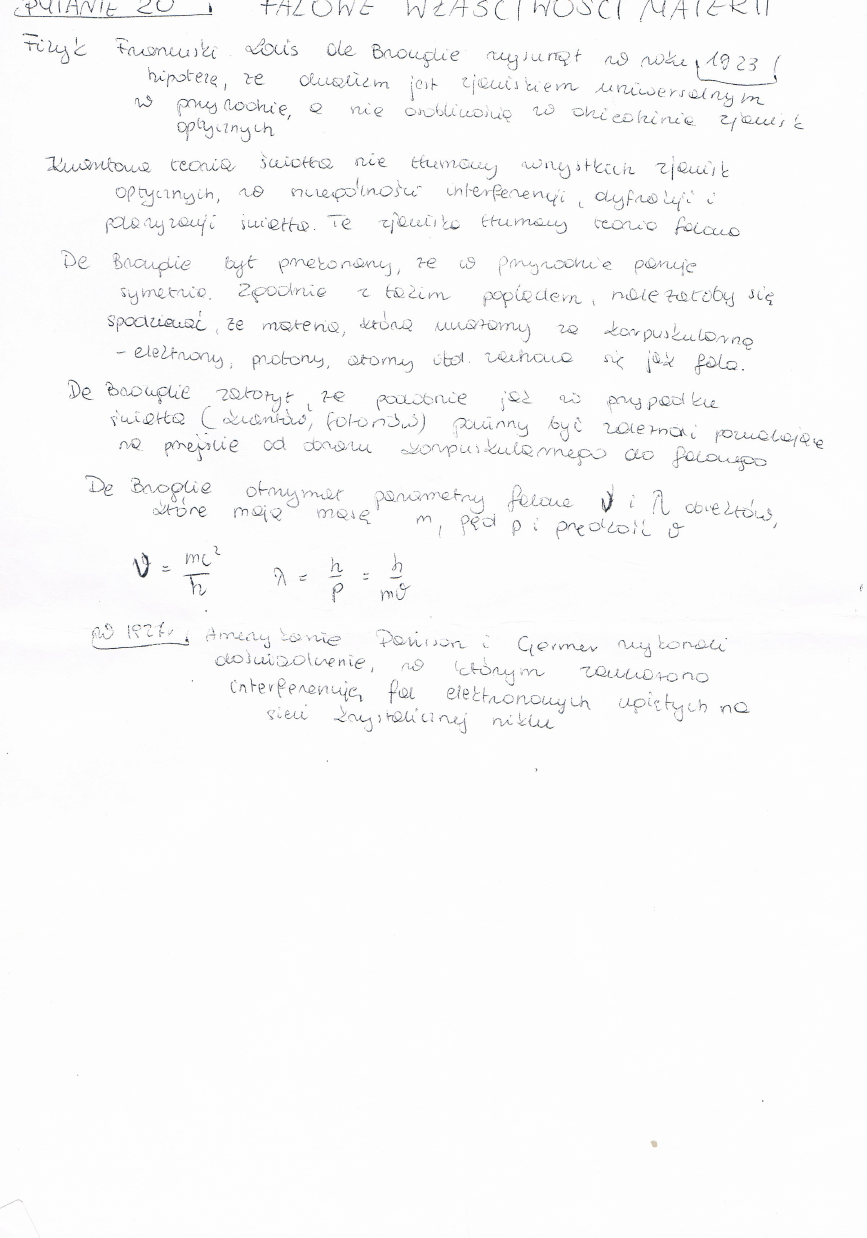 PYTANIE 20 FALOWE WŁAŚCIWOŚCI MATERII
Fizyk Francuski Louis de Brouglie wysunął w roku 1923
hipotezę, że dualizm jest zjawiskiem uniwersalnym
w przyrodnie, a nie osobliwością w dziedzinie zjawisk
optycznych
Kwantowa teoria światła nie tłumaczy wszystkich zjawisk
optycznych, w szczególności interferencji, dyfrakcji i
polaryzacji światła. Te zjawiska tłumaczy teoria falowa
De Brouglie był przekonany, że w przyrodnie panuje
symetria. Zgodnie z takim poglądem, należałoby się
spodziewać, że materia, którą uważamy za korpuskularną
- elektrony, protony, atomy itd. zachowa się jak fala.
De Brouglie założył, że podobnie jak w przypadku
światła (kwantów, fotonów) powinny być zależności pozwalające
na przejście od obrazu korpuskularnego do falowego
De Broglie otrzymał parametry falowe ν i λ obiektów,
które mają masę m, pęd p i prędkość υ
ν = mc² / h λ = h / p = h / mυ
W 1927r. Amerykanie Davisson i Germer wykonali
doświadczenie, w którym zauważono
interferencję fal elektronowych ugiętych na
sieci krystalicznej niklu